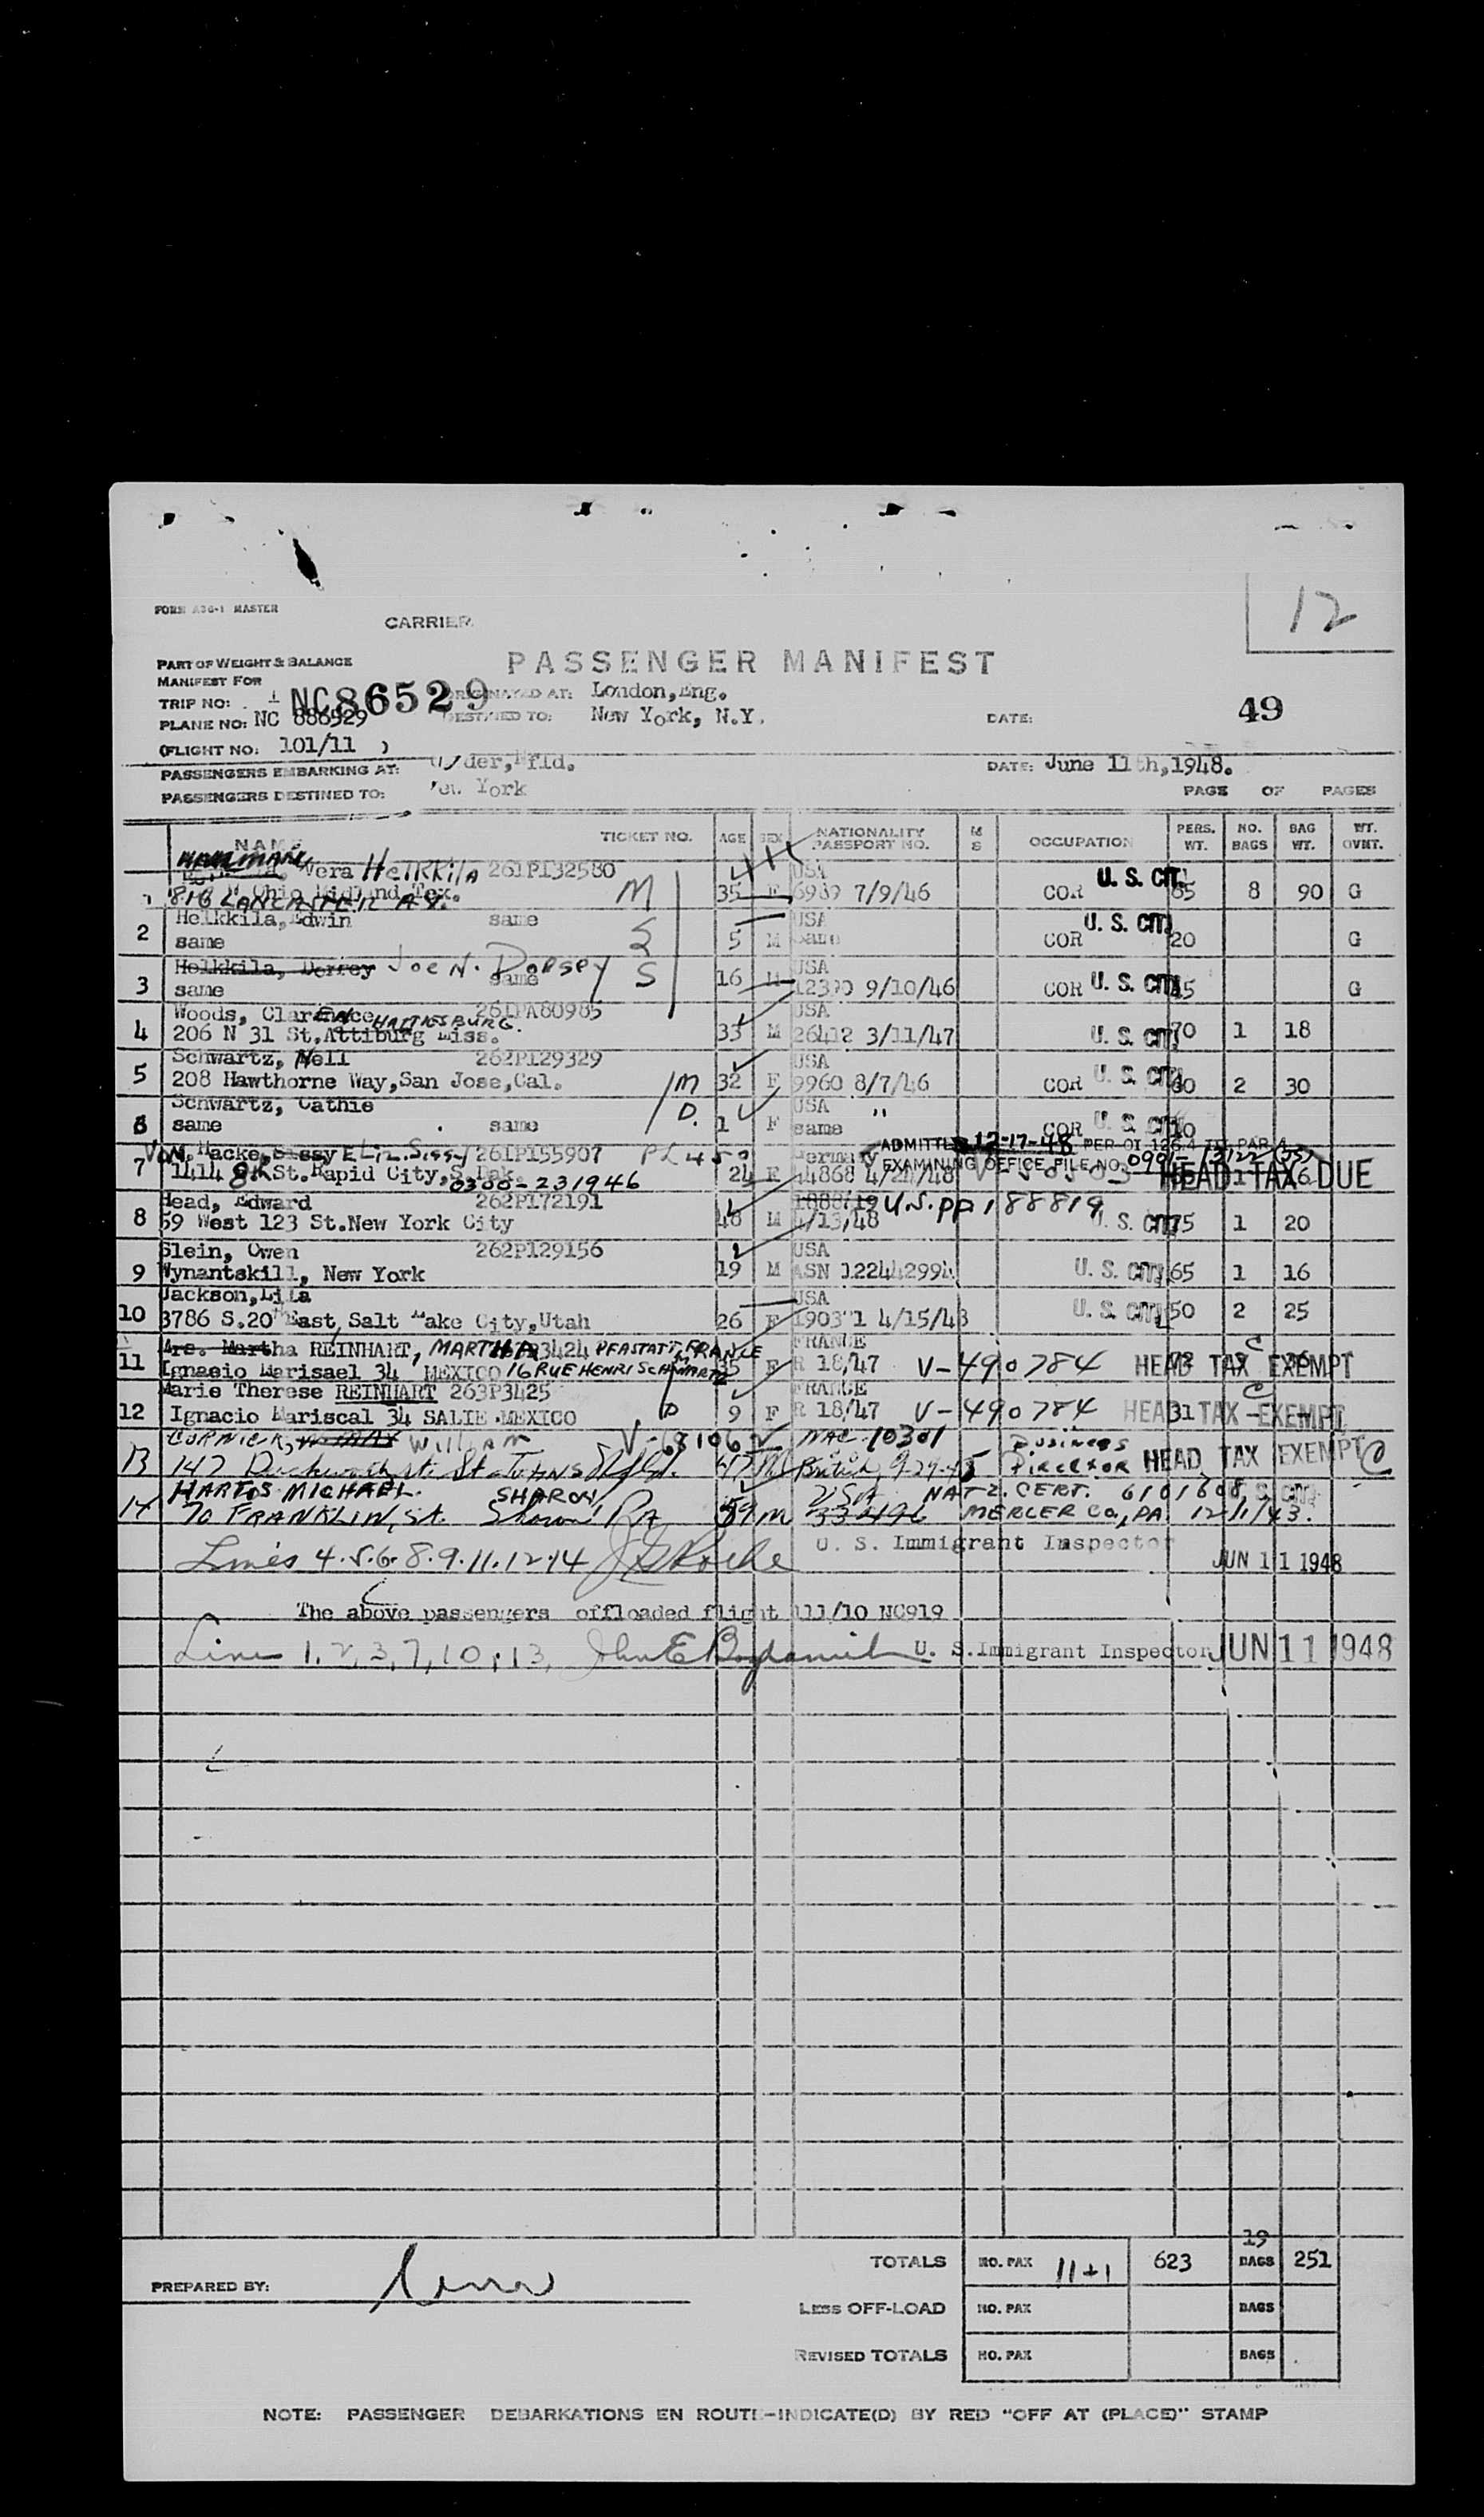 12
FORM A36-1 MASTER
CARRIER
PART OF WEIGHT & BALANCE
PASSENGER MANIFEST
MANIFEST FOR
TRIP NO: NC86529 ORIGINATED AT: London,Eng.
PLANE NO: NC 886529 DESTINED TO: New York, N.Y. DATE: 49
(FLIGHT NO: 101/11 )
PASSENGERS EMBARKING AT: der, Nfld. DATE: June 11th,1948.
PASSENGERS DESTINED TO: York PAGE OF PAGES
NAME TICKET NO. AGE SEX NATIONALITY PASSPORT NO. M S OCCUPATION PERS. WT. NO. BAGS BAG WT. WT. OVHT.
Vera Heikkila 261P132580 USA U. S. CIT.
1 816 LANCASTER AV. M 35 F 6989 7/9/46 COR 65 8 90 G
Heikkila, Edwin same USA U. S. CIT.
2 same S 5 M same COR 20 G
Heikkila, Dorrey Joe N. Dorsey same USA
3 same S 16 M 12390 9/10/46 COR U. S. CIT. 45 G
Woods, Clarence 261PA80985 USA
4 206 N 31 St.Attiburg Miss. HATTIESBURG. 33 M 26412 3/11/47 U. S. CIT. 70 1 18
Schwartz, Nell 262P129329 USA
5 208 Hawthorne Way,San Jose,Cal. M 32 F 9960 8/7/46 COR U. S. CIT. 60 2 30
Schwartz, Cathie USA "
6 same same D. 1 F same COR U. S. CIT. 10
Von Hacke, Sissy ELiz. Sissy 261P155907 PL 450 Germany ADMITTED 12-17-48 PER OI 126.4 PAR 4
EXAMINING OFFICE FILE NO. 0901-13122
7 1414 8th St.Rapid City,S.Dak. 0300-231946 24 F 14868 4/24/48 HEAD TAX DUE
Head, Edward 262P172191 U.S. PP 188819
8 59 West 123 St.New York City 48 M 4/13/48 U. S. CIT. 75 1 20
Slein, Owen 262P129156 USA
9 Wynantskill, New York 19 M ASN 12244299 U. S. CIT. 65 1 16
Jackson,Lila USA
10 3786 S.20th East, Salt Lake City,Utah 26 F 190371 4/15/48 U. S. CIT. 50 2 25
Mrs. Martha REINHART, MARTHA 3424 PFASTATT, FRANCE FRANCE C
11 Ignasio Marisael 34 MEXICO 16 RUE HENRI SCHWARTZ M 35 F R 18/47 V-490784 HEAD TAX EXEMPT
Marie Therese REINHART 263P3425 FRANCE C
12 Ignacio Mariscal 34 SALIE MEXICO D 9 F R 18/47 V-490784 31 HEAD TAX EXEMPT
CORNICK, William NAC 10301 Business
13 147 Duckworth St. St. JOHNS Nfld. 47 M British 9-29-45 Director HEAD TAX EXEMPT C
HARTOS MICHAEL. SHARON, USA NATZ. CERT. 6101608 U. S. CIT.
14 70 FRANKLIN, St. Sharon PA 59 M 33496 MERCER Co, PA. 12/1/43.
Lines 4.5.6.8.9.11.12.14 U. S. Immigrant Inspector JUN 11 1948
The above passengers offloaded flight 111/10 NC919
Lines 1,2,3,7,10,13, U. S.Immigrant Inspector JUN 11 1948
19
TOTALS NO. PAX 11+1 623 BAGS 251
PREPARED BY:
LESS OFF-LOAD NO. PAX BAGS
REVISED TOTALS NO. PAX BAGS
NOTE: PASSENGER DEBARKATIONS EN ROUTE-INDICATE(D) BY RED "OFF AT (PLACE)" STAMP